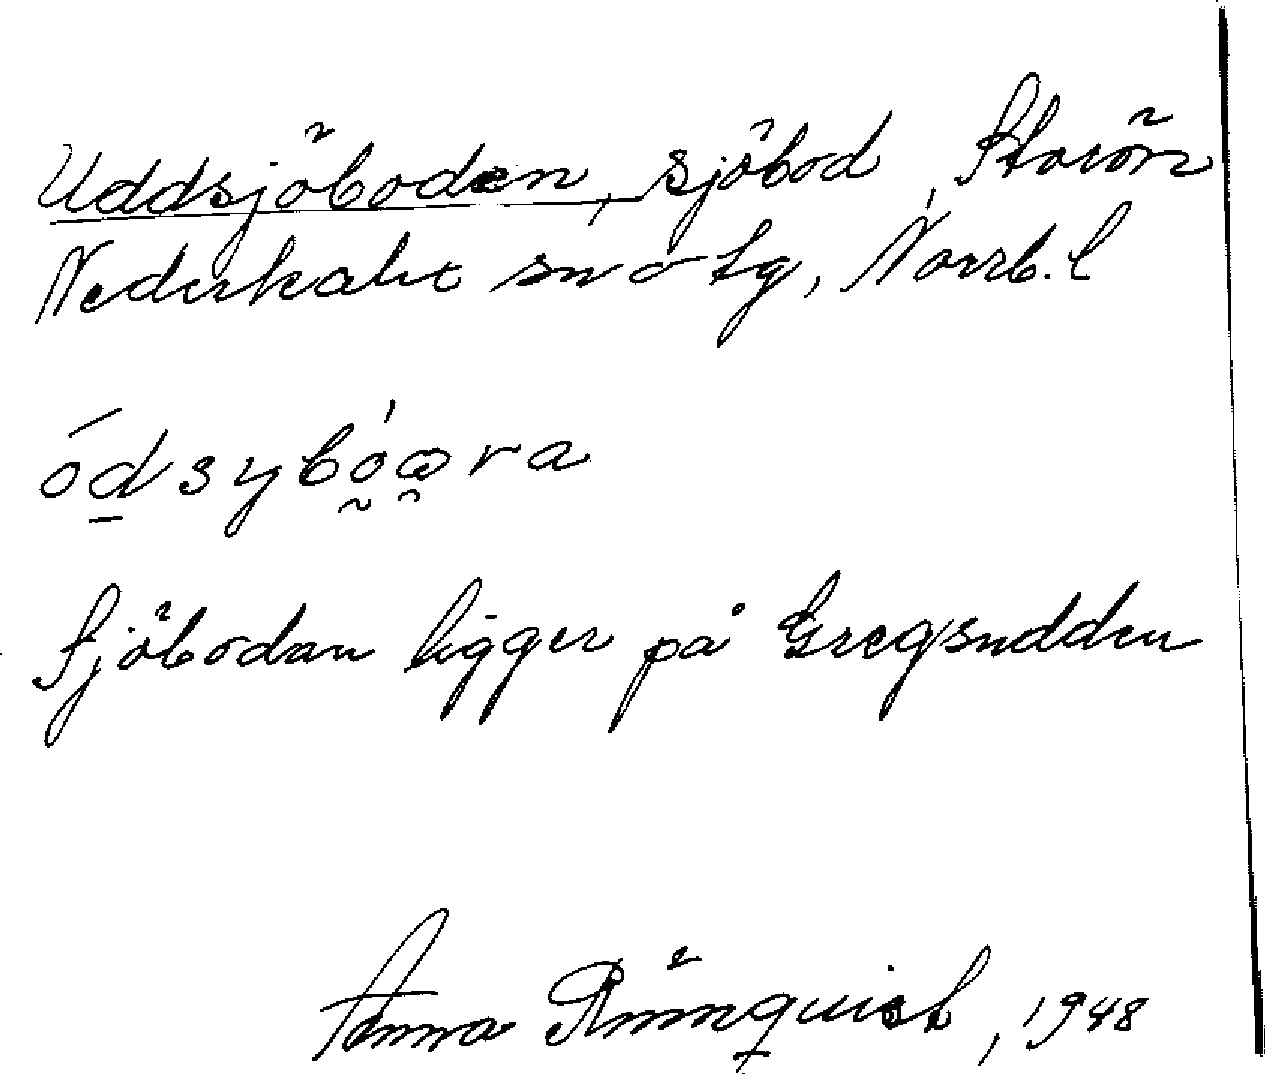 Uddsjöboden, sjöbod, Storön
Nederkalix sn o tg, Norrb. l
ódsybó̰ω̯ra
Sjöbodan ligger på Gregsudden
Anna Rönnquist, 1948